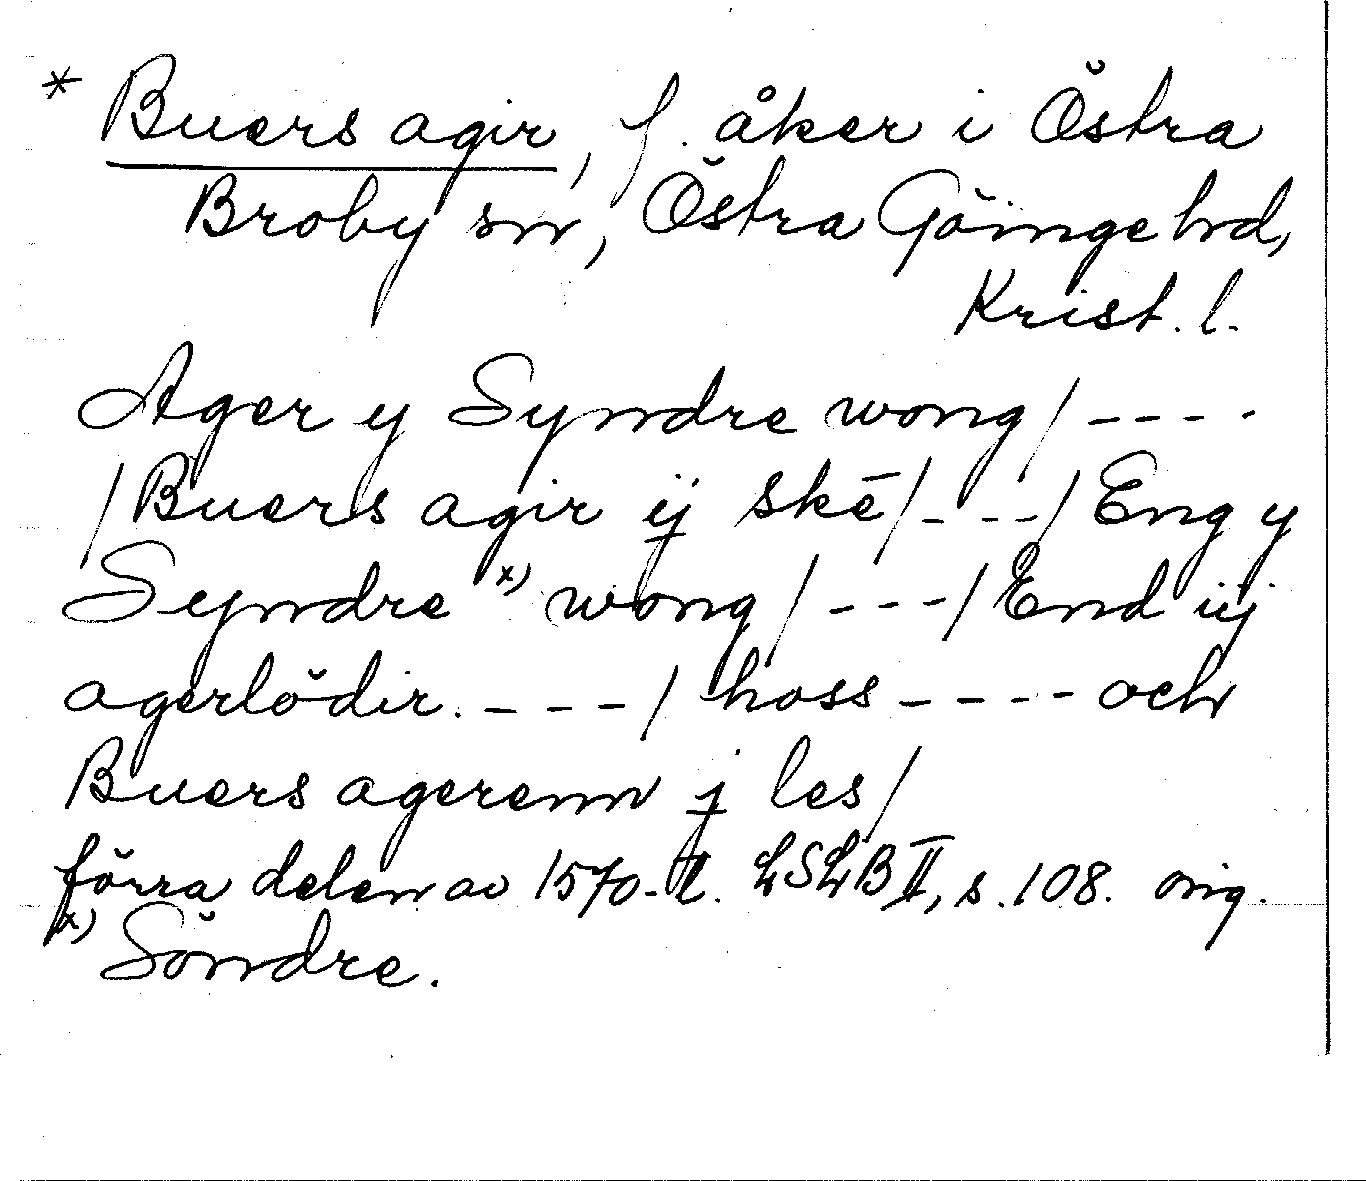 * Buers agir, f. åker i Östra
Broby sn, Östra Göinge hd,
Krist. l.
Ager y Syndre wong/ ----
/Buers agir ij skē/---/ Eng y
Syndre x) wong/---/ End iij
agerlödir. ---/ hoss ---- och
Buers agerenn j les/
förra delen av 1570-t. LSLB II, s. 108. orig.
x) Söndre.